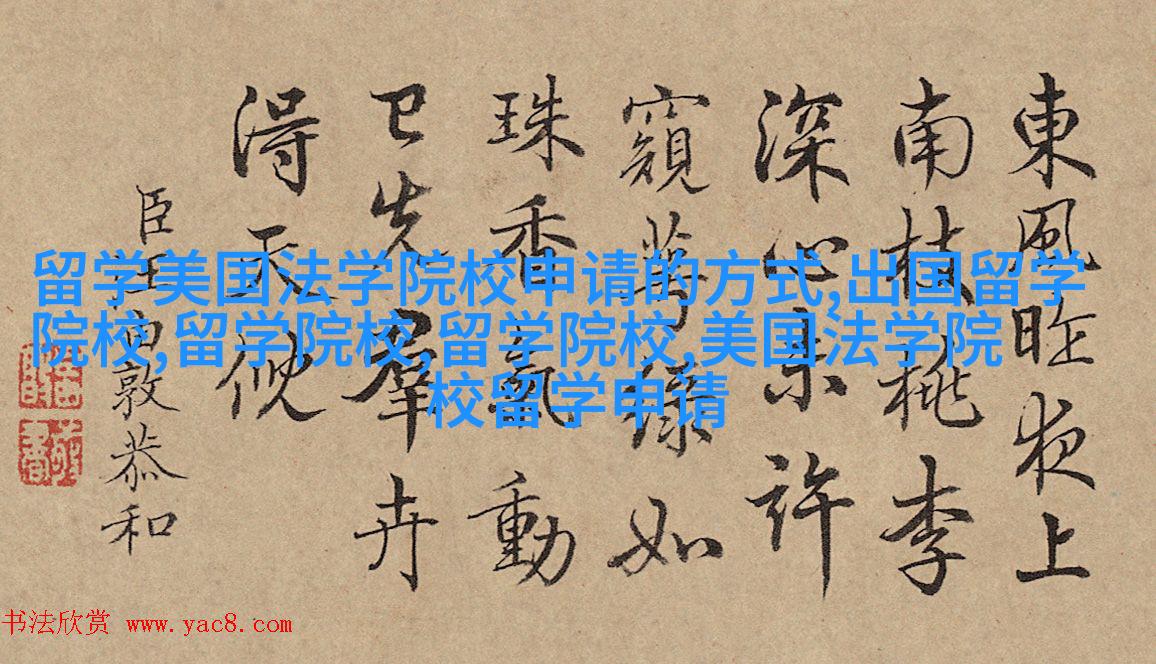 東風昨夜上
南枝桃李
深心未許
窺萼綠如
珠香氣動
已先羣卉
得天倪
臣汪由敦恭和
留学美国法学院校申请的方式,出国留学
院校,留学院校,留学院校,美国法学院
校留学申请
书法欣赏 www.yac8.com